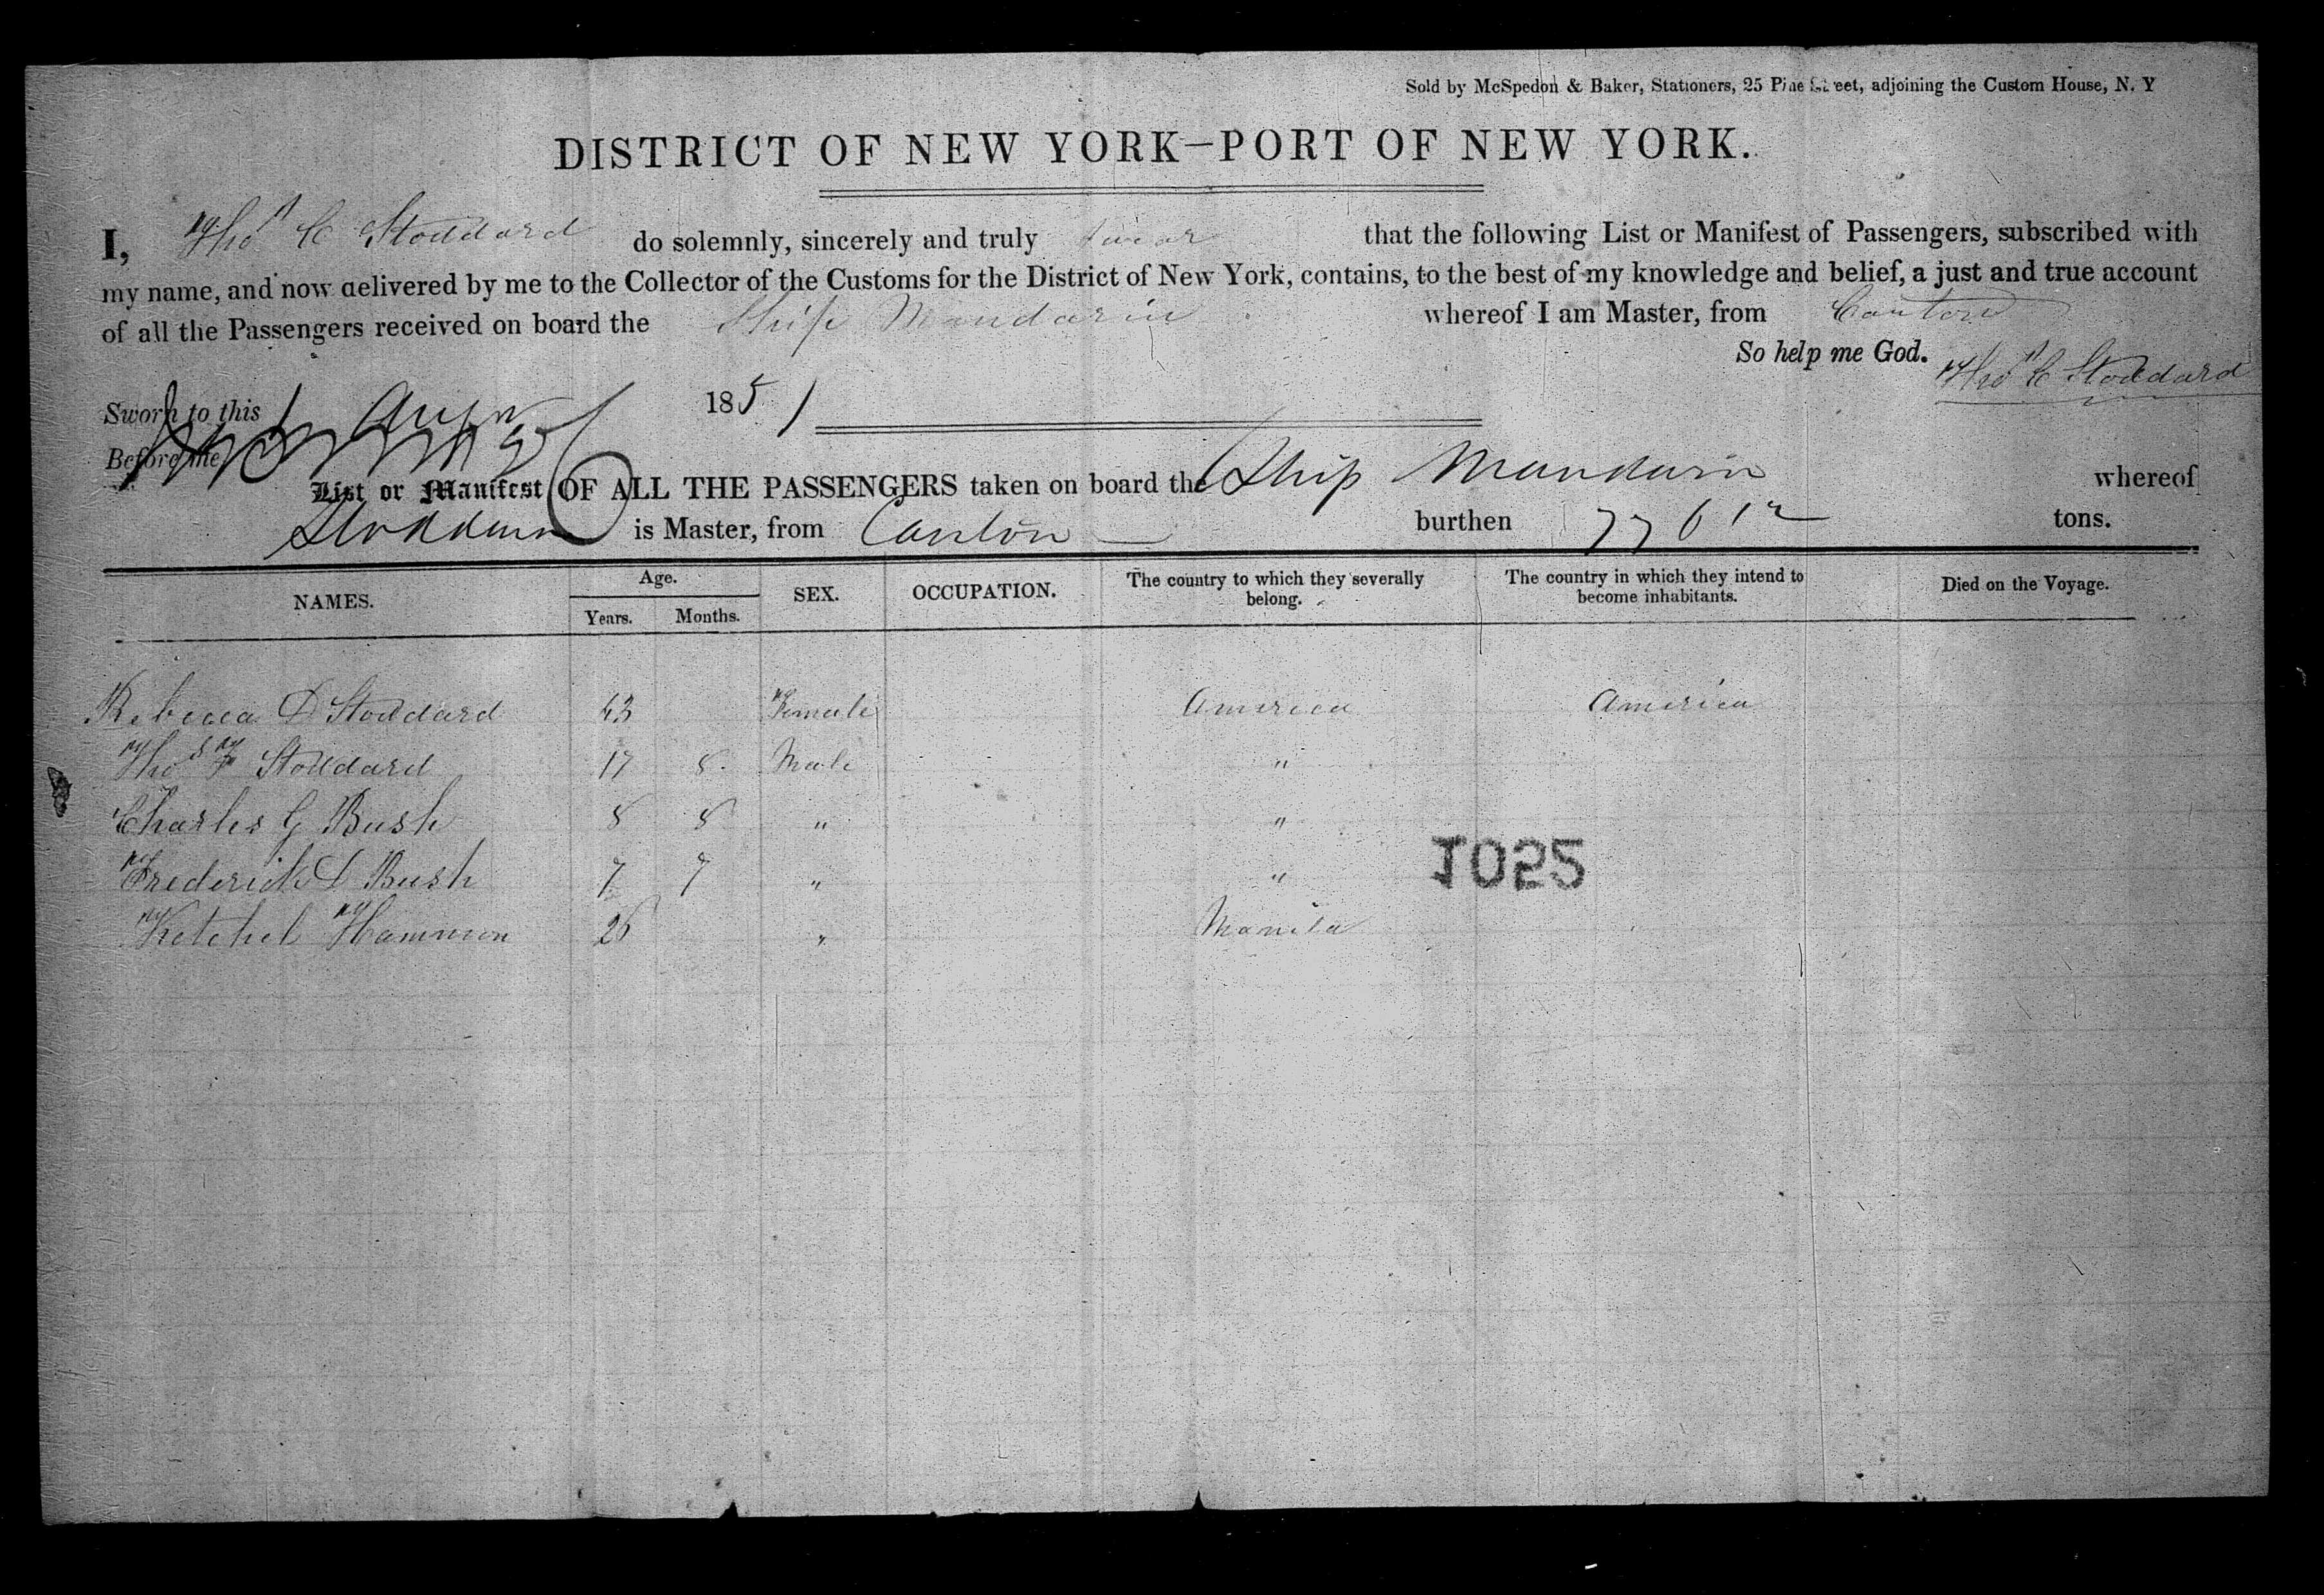 Sold by McSpedon & Baker, Stationers, 25 Pine Street, adjoining the Custom House, N. Y
DISTRICT OF NEW YORK—PORT OF NEW YORK.
I, Thos C Stoddard do solemnly, sincerely and truly swear that the following List or Manifest of Passengers, subscribed with
my name, and now delivered by me to the Collector of the Customs for the District of New York, contains, to the best of my knowledge and belief, a just and true account
of all the Passengers received on board the Ship Mandarin whereof I am Master, from Canton
So help me God. Thos C Stoddard
Sworn to this 1 Augst 1851
Before me
List or Manifest OF ALL THE PASSENGERS taken on board the Ship Mandarin whereof
Stoddard is Master, from Canton burthen 776 12 tons.
NAMES. Age. Years. Months. SEX. OCCUPATION. The country to which they severally belong. The country in which they intend to become inhabitants. Died on the Voyage.
Rebecca D Stoddard 43 Female America America
Thos F Stoddard 17 8 Male "
Charles G Bush 8 8 " "
Frederick D Bush 7 7 " "
Ketchel Hammon 26 " Manila
1025